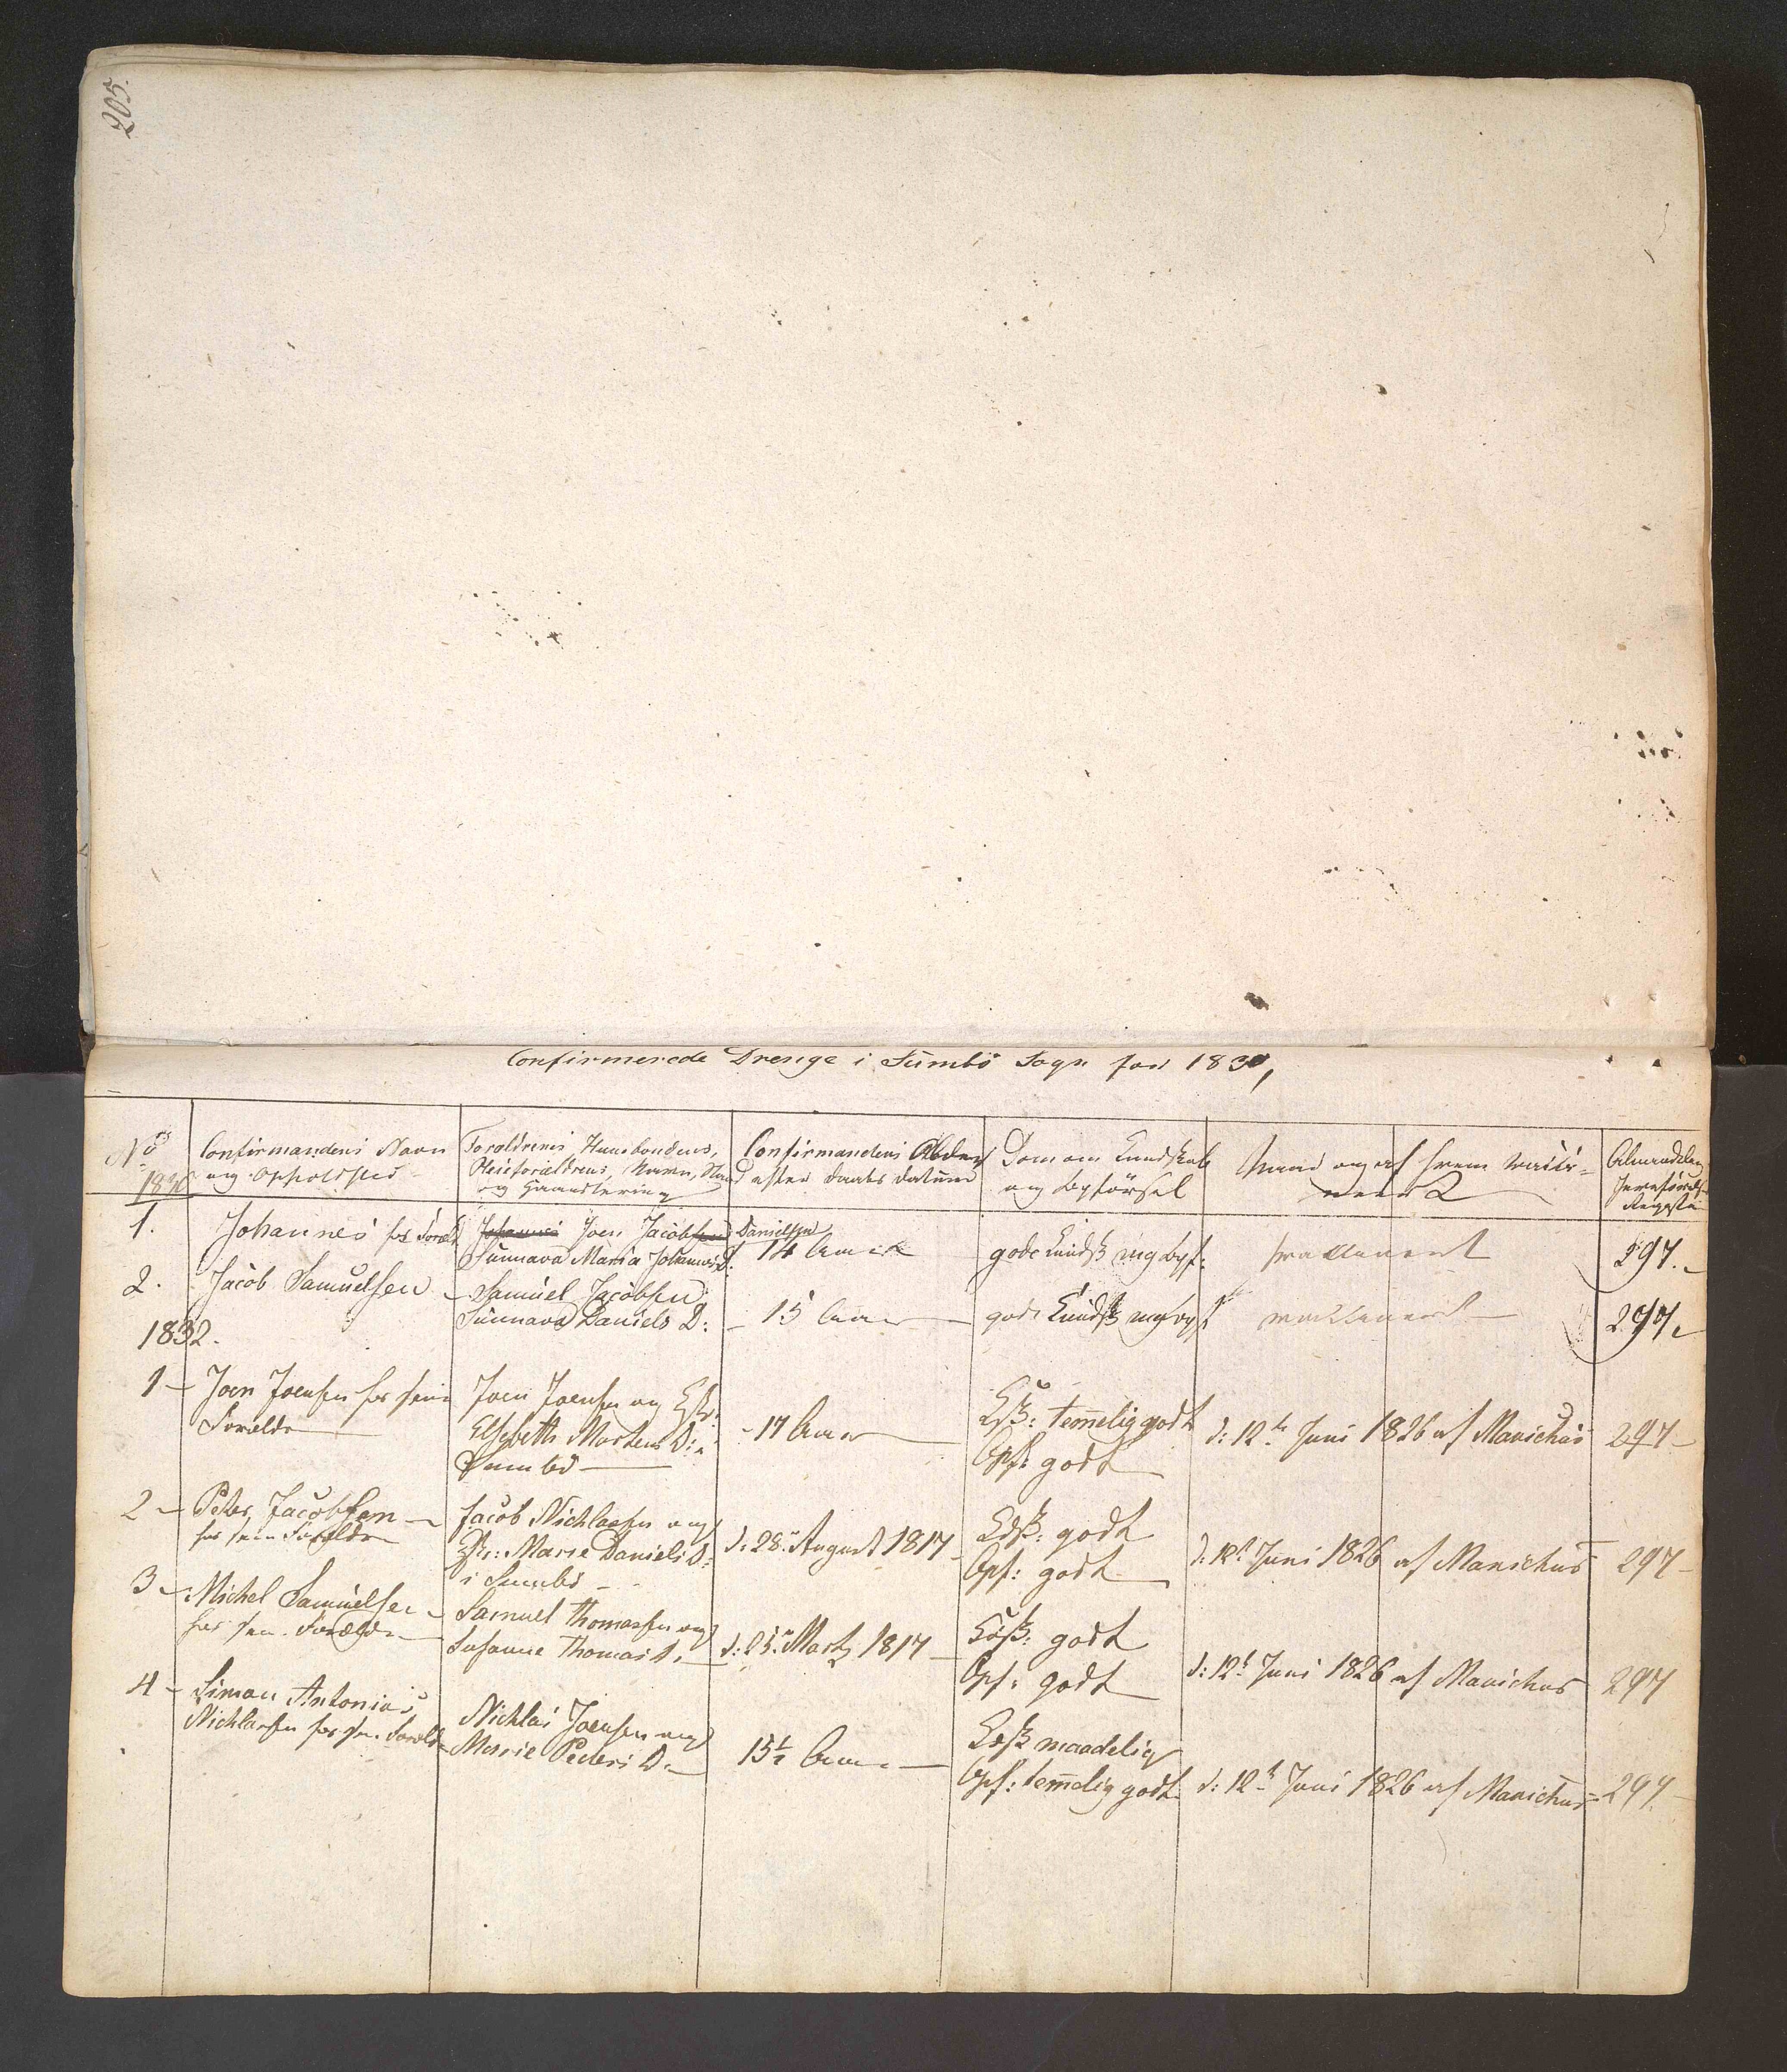 205.
Confirmerede Drenge i Sumbö Sogn for 1830,
No
1830
Confirmandens Navn
og Opholdsted
Foraldrenes Huusbondens,
Pleieforaldrens, Navn, Stand
og Haandtering
Confirmandens Alder
efter Daabs datum
Dom om Kundskab
og Opförsel
Naar og af hvem vacci-
neret
Almindelige
Jevnförelses
Register
1. Johannes hos Foræl. Joen Jacobsen Danielsen
Sunnava Maria Johannes D: 14 Aar gode Kundsk og Opf: vaccineret 297.
2. Jacob Samuelsen Samuel Jacobsen
Sunnava Daniels D: 15 Aar gode Kundsk og Opf vaccineret 297.
1832.
1 Joen Joensen hos sine Joen Joensen og Hstr:
Forældre Elsebeth Mortens D: i
Sumbö 17 Aar
Kdsk: temelig godt
Opf: godt d: 12te Juni 1826 af Manichus 297
2 Peter Jacobsen
hos sine Forældre Jacob Nichlasen og
Hstr: Marie Daniels D:
i Sumbö d: 28. August 1817
Kdsk: godt
Opf: godt d: 12t Juni 1826 af Manichus 297
3 Michel Samuelsen
hos sine Forældre Samuel Thomasen og
Susanne Thomas D. d: 25. Martz 1817
Kdsk: godt
Opf: godt d: 12t Juni 1826 af Manichus 297
4 Simon Antonius
Nichlasen hos sine Foreldre Nichlas Joensen og
Marie Peders D. 15½ Aar
Kdsk maadelig
Opf: temelig godt d: 12t Juni 1826 af Manichus 297